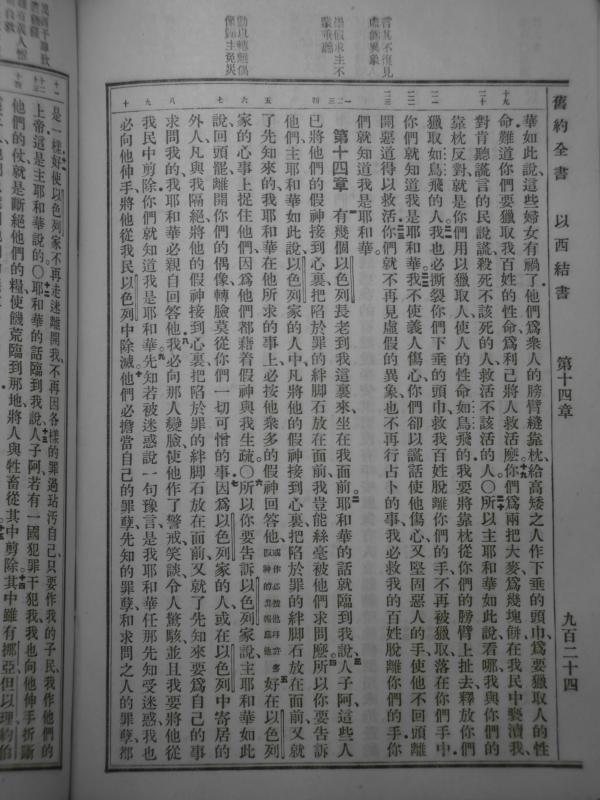 舊約全書 以西結書 第十四章 九百二十四
華如此說、這些婦女有禍了、他們爲衆人的膀臂縫靠枕、給高矮之人作下垂的頭巾、爲要獵取人的性
命、難道你們要獵取我百姓的性命、爲利己將人救活麼。你們爲兩把大麥、爲幾塊餅、在我民中褻瀆我、
對肯聽謊言的民說謊、殺死不該死的人、救活不該活的人。〇所以主耶和華如此說、看哪、我與你們的
靠枕反對、就是你們用以獵取人、使人的性命如鳥飛的、我要將靠枕從你們的膀臂上扯去、釋放你們
獵取如鳥飛的人。我也必撕裂你們下垂的頭巾、救我百姓脫離你們的手、不再被獵取、落在你們手中、
你們就知道我是耶和華。我不使義人傷心、你們卻以謊話使他傷心、又堅固惡人的手、使他不回頭離
開惡道得以救活。你們就不再見虛假的異象、也不再行占卜的事、我必救我的百姓脫離你們的手、你
們就知道我是耶和華。
第十四章 有幾個以色列長老到我這裏來、坐在我面前。耶和華的話就臨到我說、人子阿、這些人
已將他們的假神接到心裏、把陷於罪的絆脚石放在面前、我豈能絲毫被他們求問麼。所以你要告訴
他們、主耶和華如此說、以色列家的人中、凡將他的假神接到心裏、把陷於罪的絆脚石放在面前、又就
了先知來的、我耶和華在他所求的事上、必按他衆多的假神回答他、好在以色列
家的心事上捉住他們、因爲他們都藉着假神與我生疏。〇所以你要告訴以色列家說、主耶和華如此
說、回頭罷、離開你們的偶像、轉臉莫從你們一切可憎的事。因爲以色列家的人、或在以色列中寄居的
外人、凡與我隔絕、將他的假神接到心裏、把陷於罪的絆脚石放在面前、又就了先知來要爲自己的事
求問我的、我耶和華必親自回答他。我必向那人變臉、使他作了警戒、笑談、令人驚駭、並且我要將他從
我民中剪除、你們就知道我是耶和華。先知若被迷惑說一句豫言、是我耶和華任那先知受迷惑、我也
必向他伸手、將他從我民以色列中除滅。他們必擔當自己的罪孽、先知的罪孽和求問之人的罪孽、都
是一樣、好使以色列家不再走迷離開我、不再因各樣的罪過玷汚自己、只要作我的子民、我作他們的
上帝、這是主耶和華說的。〇耶和華的話臨到我說、人子阿、若有一國犯罪干犯我、我也向他伸手折斷
他們的杖、就是斷絕他們的糧、使饑荒臨到那地、將人與牲畜從其中剪除。其中雖有挪亞、但以理、約伯